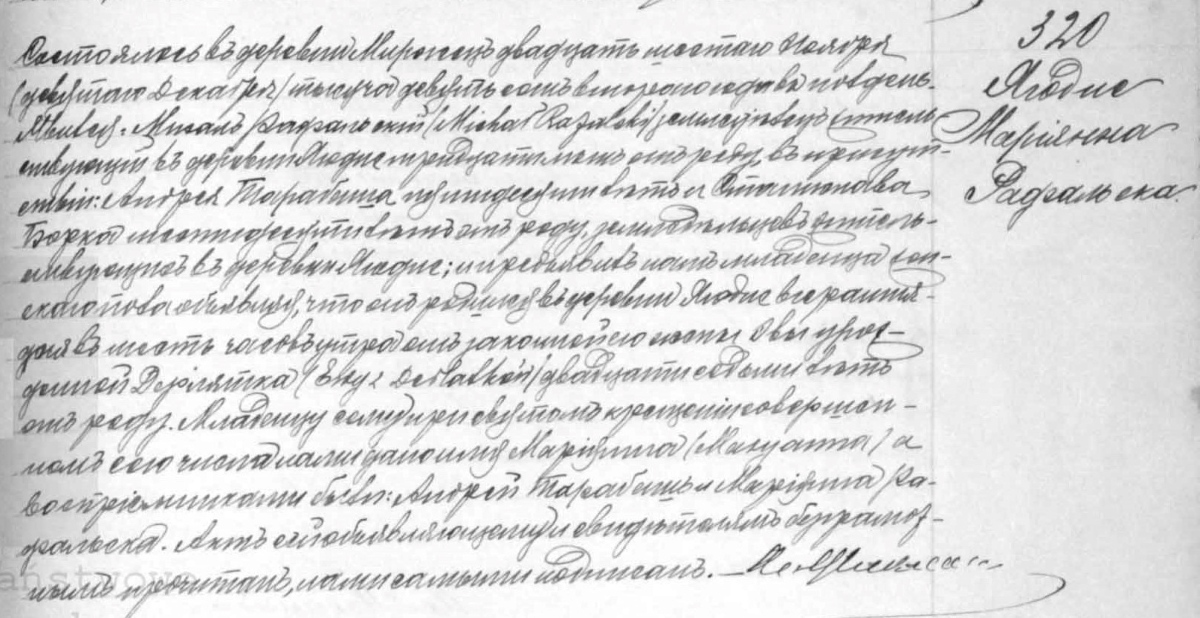 Состоялось въ деревнѣ Мирженцъ двадцать шестаго Ноября
(девятаго Декабря) тысяча девять сотъ втораго года въ полдень.
Явился: Михалъ Рафальскій (Michał Rafalski) земледѣлецъ жительствующій въ деревни Ягодне тридцати лѣтъ отъ роду, въ присутствіи: Андрея Тарабаша пятидесяти лѣтъ и Станислава
Борка шестидесяти лѣтъ отъ роду, земледѣльцевъ житель-
ствующихъ въ деревни Ягодне; и предъявилъ намъ младенца жен-
скаго пола объявляя, что онъ родился въ деревнѣ Ягодне вчерашняго
дня въ шесть часовъ утра отъ законной его жены Эвы урож-
денной Дерлятка (Ewy z Derlatków) двадцати седьми лѣтъ
отъ роду. Младенцу сему при святомъ крещеніи совершен-
номъ сего числа нами дано имя Маріянна (Maryanna) а
воспріемниками были: Андрей Тарабашъ и Маріянна Ра-
фальска. Актъ сей объявляющему и свидѣтелямъ безграмот-
нымъ прочитанъ, нами самыми подписанъ.
320
Ягодне
Маріянна
Рафальска.
aństwowe